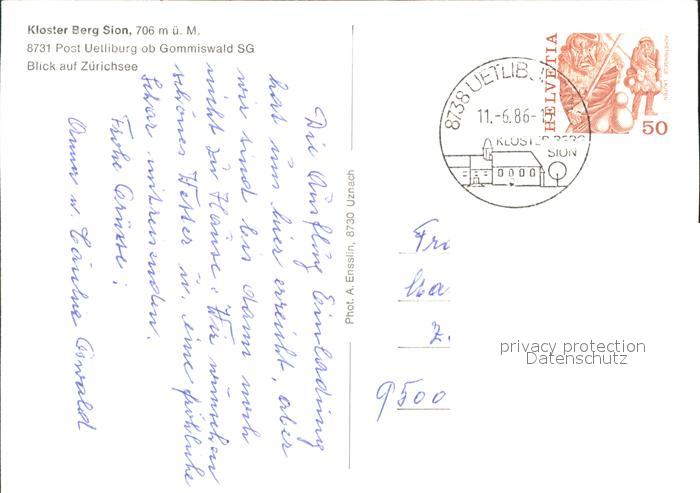 Kloster Berg Sion, 706 m ü. M.
8731 Post Uetliburg ob Gommiswald SG
Blick auf Zürichsee
Die Ausflug Einladung
hat uns hier erreicht, aber
wir sind bis dann noch
nicht zu Hause. Wir wünschen
schönes Wetter u. eine fröhliche
Schar mitreisenden.
Frohe Grüsse!
Anna u. Oswald
Phot. A. Ensslin, 8730 Uznach
8738 UETLIB
11.-6.86-1
KLOSTER BERG
SION
HELVETIA
ACHETRINGELE LAUPEN
50
Fr
Z.
9500
privacy protection
Datenschutz